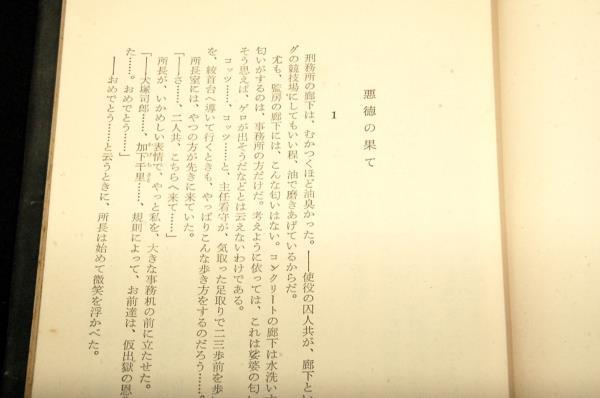 悪徳の果て
1
刑務所の廊下は、むかつくほど油臭かった。――使役の囚人共が、廊下とい
グの競技場にしてもいい程、油で磨きあげているからだ。
尤も、監房の廊下には、こんな匂いはない。コンクリートの廊下は水洗い
匂いがするのは、事務所の方だけだ。考えように依っては、これは娑婆の匂い
そう思えば、ゲロが出そうだなどとは云えないわけである。
コッツ……、コッツ……と、主任看守が、気取った足取りで二三歩前を歩
を、絞首台へ導いて行くときも、やっぱりこんな歩き方をするのだろう……。
所長室には、やつの方が先きに来ていた。
「さ……、二人共、こちらへ来て……」
所長が、いかめしい表情で、やっと私を、大きな事務机の前に立たせた。
「――犬塚司郎……、加下千里……、規則によって、お前達は、仮出獄の恩
た……。おめでとう……」
――おめでとう……と云うときに、所長は始めて微笑を浮かべた。